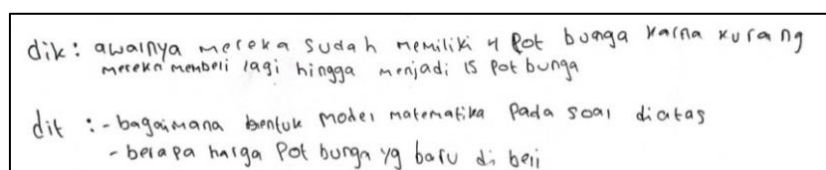 dik: awalnya mereka sudah memiliki 4 pot bunga karna kurang
mereka membeli lagi hingga menjadi 15 pot bunga
dit : - bagaimana bentuk model matematika pada soal diatas
- berapa harga pot bunga yg baru di beli